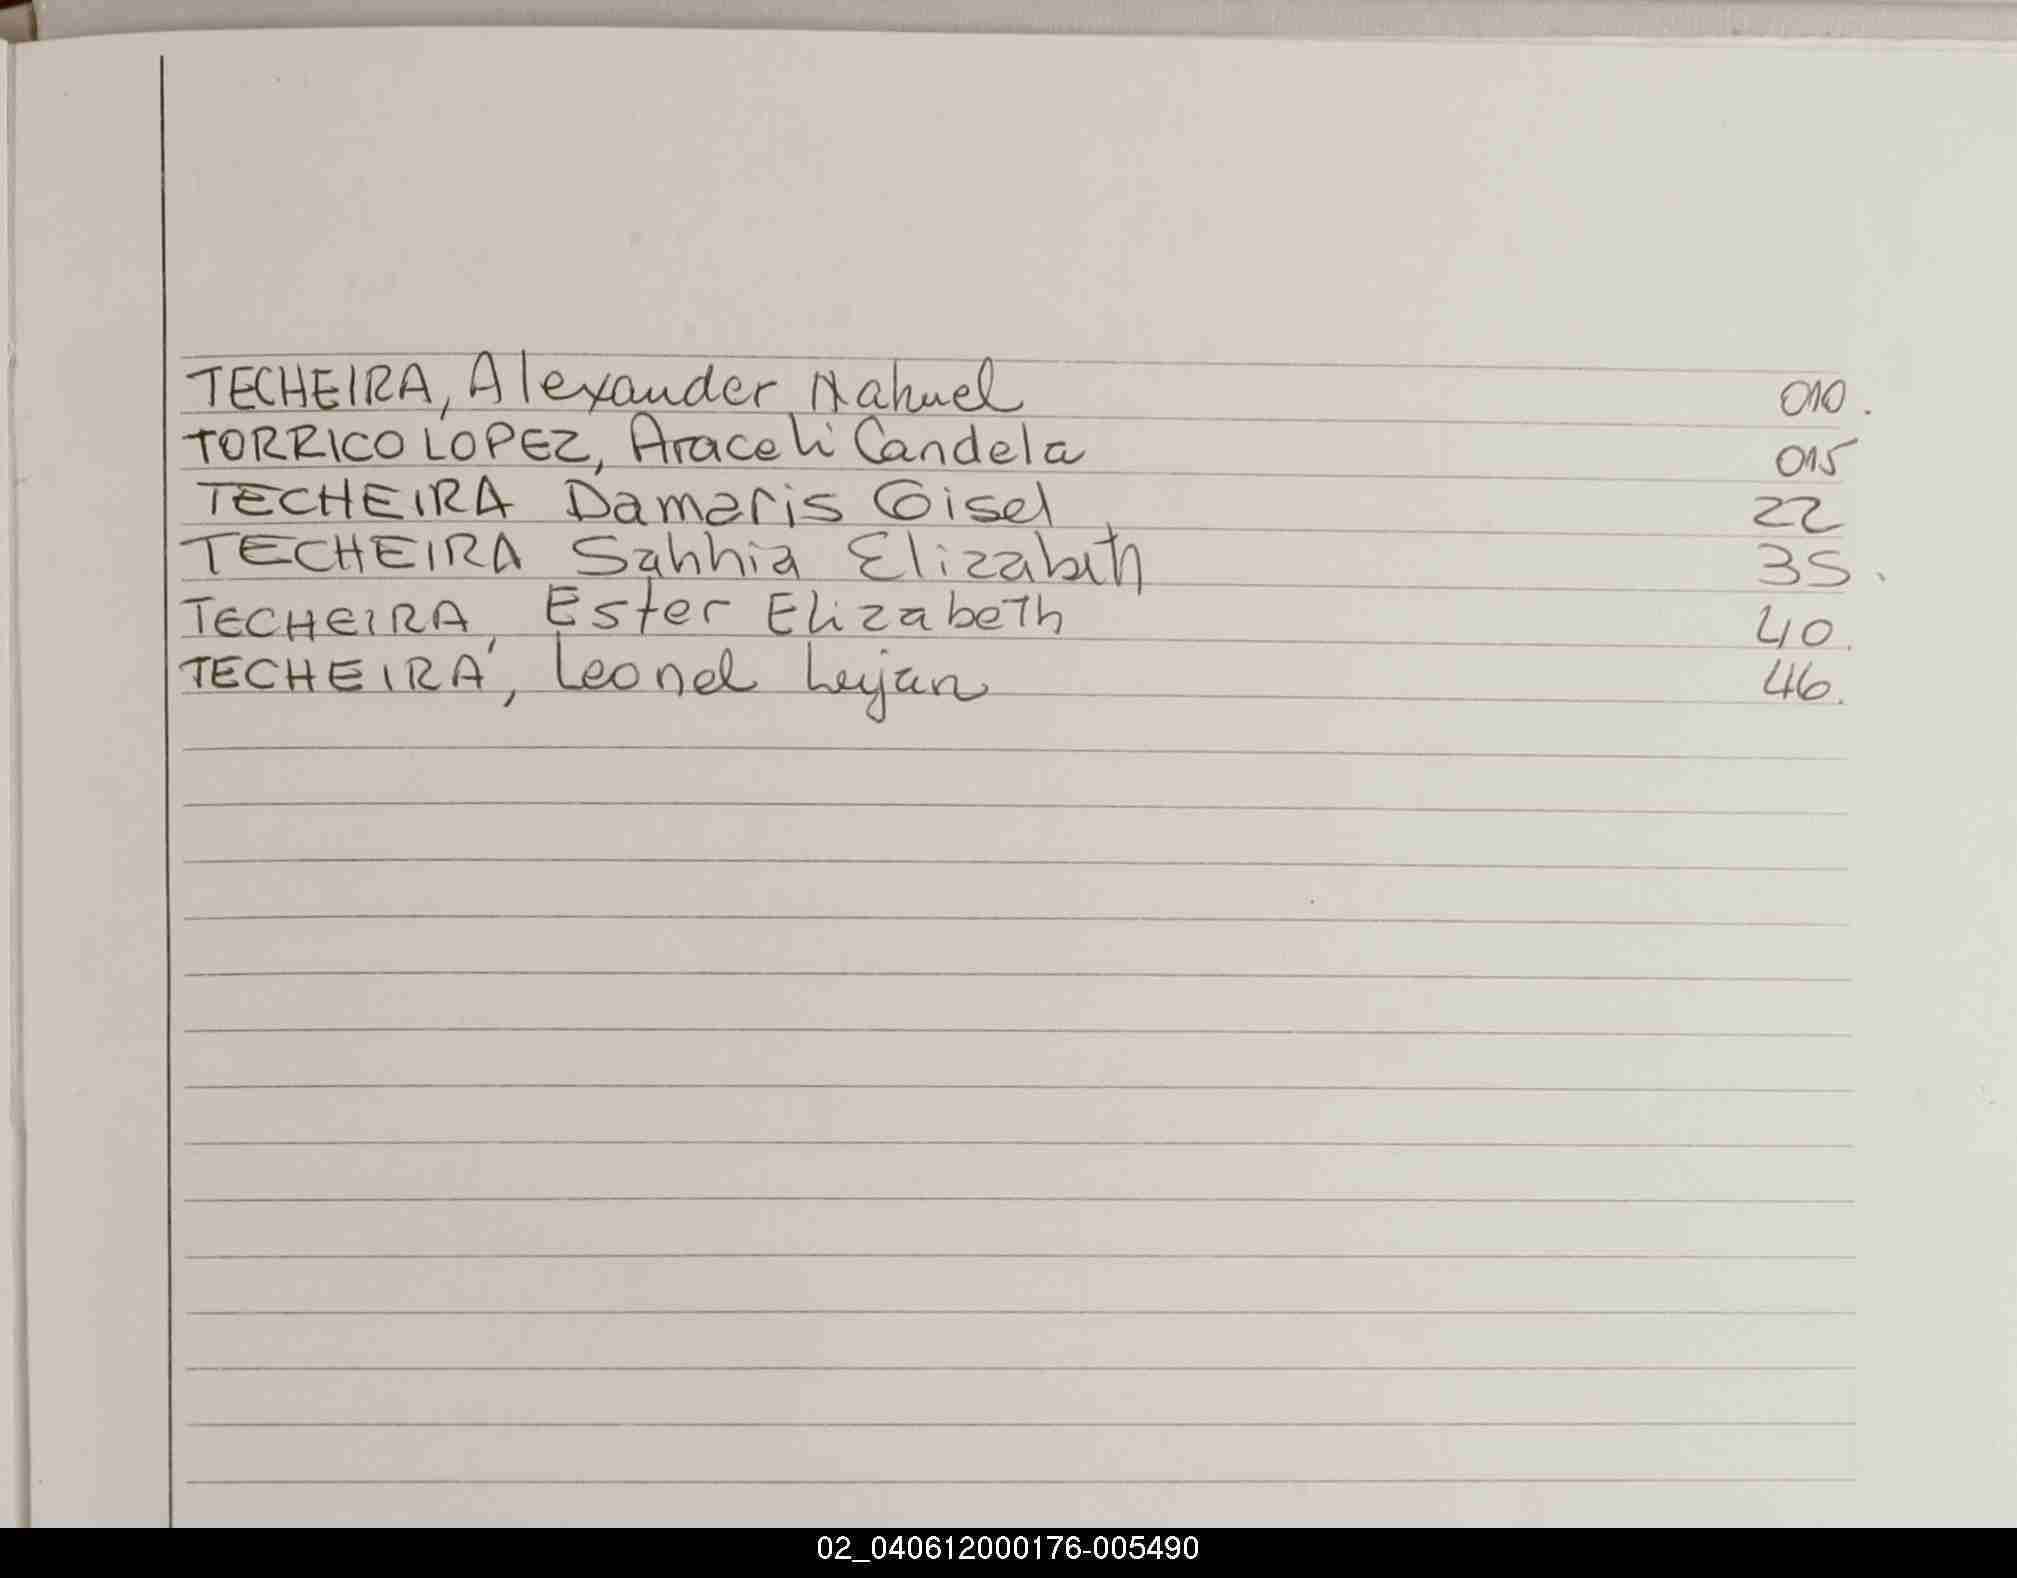 TECHEIRA, Alexander Nahuel 010.
TORRICO LOPEZ, Araceli Candela 015
TECHEIRA Damaris Gisel 22
TECHEIRA Sahhia Elizabeth 35.
TECHEIRA, Ester Elizabeth 40.
TECHEIRA, Leonel Lujan 46.
02_040612000176-005490